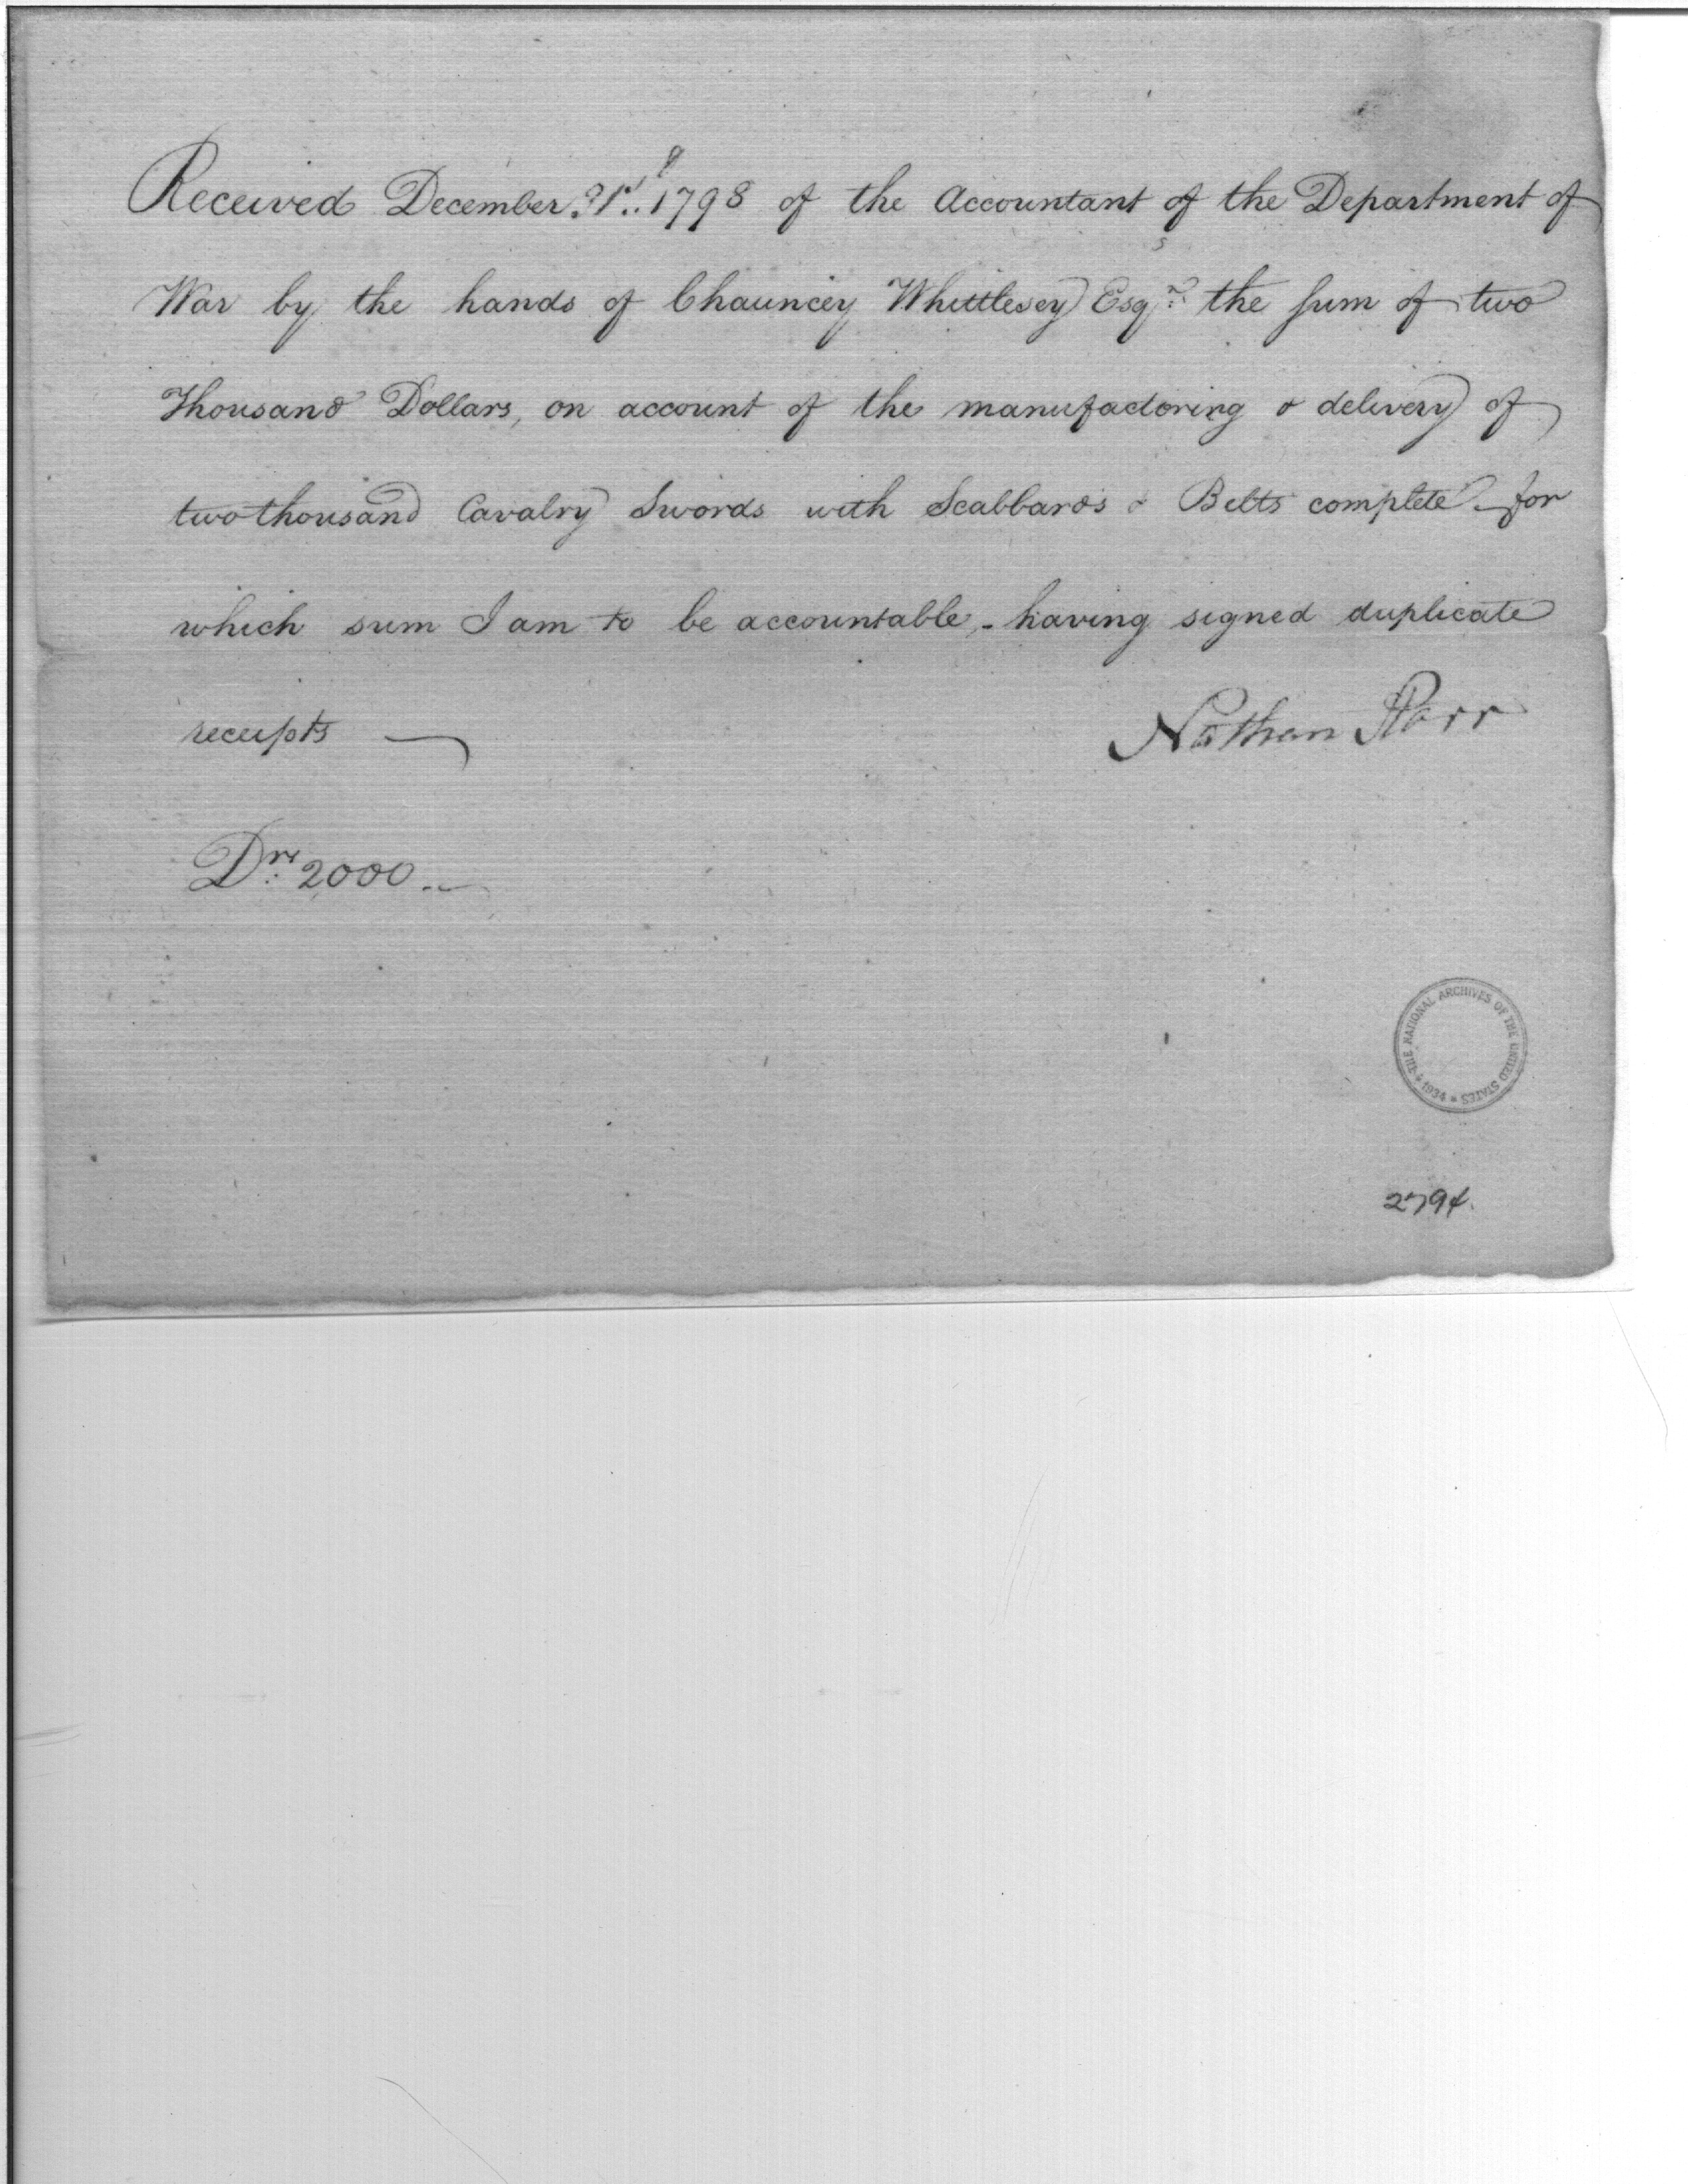 Received December 31st 1798 of the Accountant of the Department of
War by the hands of Chauncey Whittlesey Esqr. the sum of two
Thousand Dollars, on account of the manufactoring & delivery of
two thousand Cavalry Swords with Scabbards & Belts complete - for
which sum I am to be accountable, - having signed duplicate
receipts
Nathan Starr
Drs 2000..
THE NATIONAL ARCHIVES OF THE UNITED STATES * 1934 *
2794.